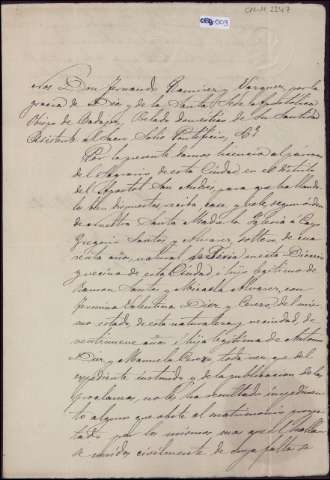 CM-M 2247
Nos Don Fernando Ramirez y Vazquez, por la
gracia de Dios y de la Santa Sede Apostólica
Obispo de Badajoz, Prelado doméstico de Su Santidad
Asistente al Sacro Solio Pontificio, &ª
Por la presente damos licencia al párroco
del Sagrario de esta Ciudad en el distrito
del Apostol San Andrés para que hallando
lo bien dispuestos reciba, case, y vele segun orden
de nuestra Santa Madre la Iglesia a
Gregorio Santos y Alvarez, soltero de cua
renta años, natural de Feria en esta Diocesis
y vecino de esta Ciudad é hijo legítimo de
Ramon Santos y Micaela Alvarez, con
Jacoba Valentina Diez y Cerezo del mis
mo estado, de esta naturaleza y vecindad de
veintinueve años é hija legítima de Antonio
Diez y Manuela Cerezo toda vez que del
expediente instruido y de la publicacion de las
proclamas, no les ha resultado impedimen
to alguno que obste al matrimonio proyec
tado por los mismos una vez que se hallan
unidos civilmente de cuya falta se